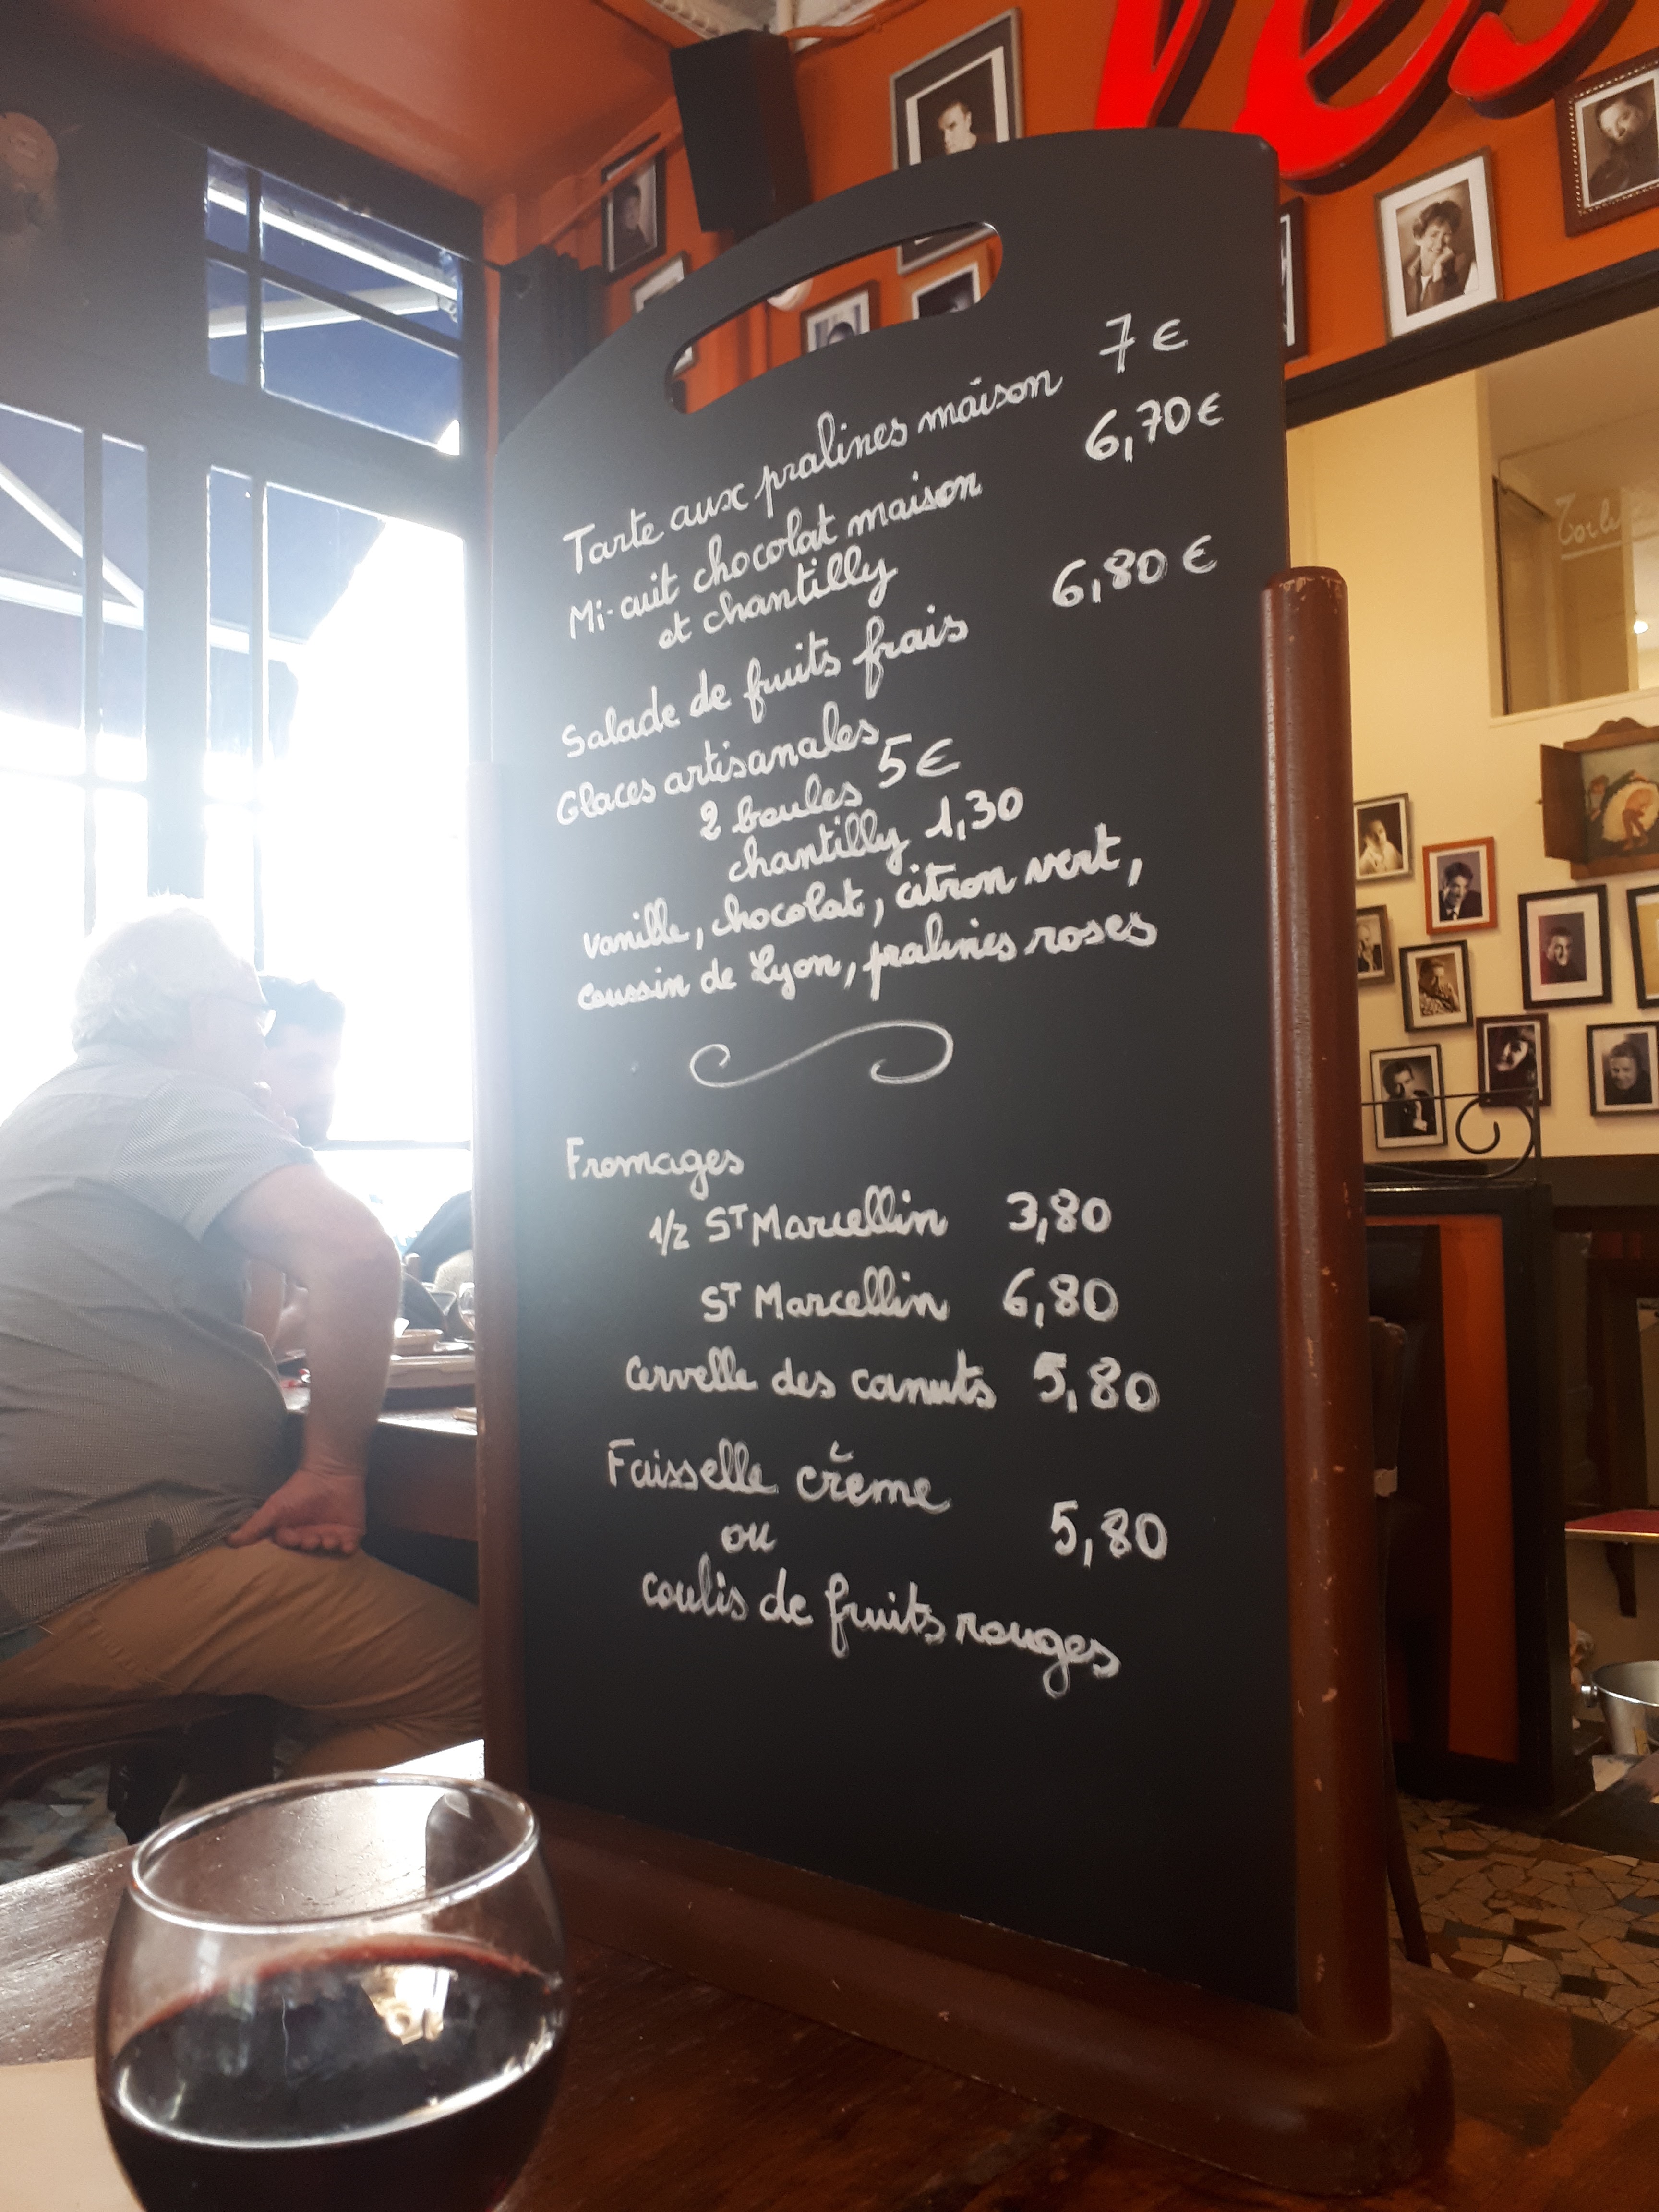 les
Tarte aux pralines maison 7€
Mi-cuit chocolat maison 6,70€
et chantilly
Salade de fruits frais 6,80€
Glaces artisanales
2 boules 5€
chantilly 1,30
vanille, chocolat, citron vert,
coussin de Lyon, pralines roses
Fromages
1/2 ST Marcellin 3,80
ST Marcellin 6,80
Cervelle des canuts 5,80
Faisselle crème
ou 5,80
coulis de fruits rouges